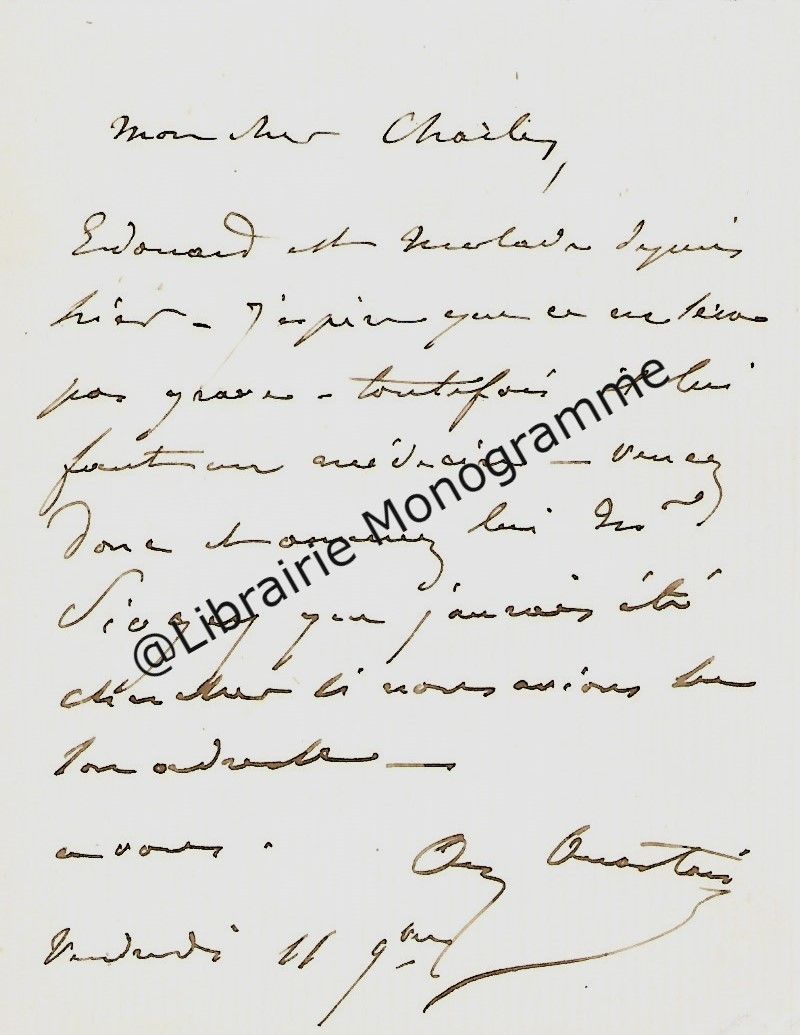 mon cher Charles,
Edouard est malade depuis
hier - J'espère que ce ne sera
pas grave - toutefois il lui
faut un médecin - venez
donc et amenez lui Mr
que j'aurais été
chercher si nous avions su
son adresse -
a vous.
Vendredi 11 9bre
@Librairie Monogramme